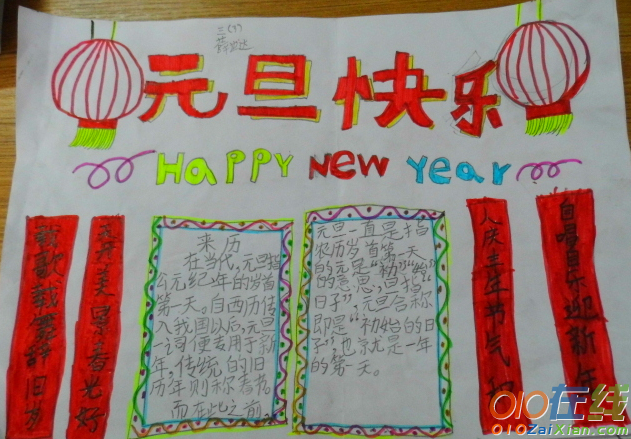 元旦快乐
HAPPY NEW Year
载歌载舞辞旧岁
美景春光好
来历
在当代,元旦指
公元纪年的岁首
第一天。自西历传
入我国以后,元旦
一词便专用于新
年,传统的旧
历年则称春节。
而在此之前,
元旦一直是指
农历岁首第一天
的。元是“初”“始”
的意思,旦指“
日子”,元旦合称
即是“初始的日
子”,也就是一年
的第一天。
人庆丰年节气
自唱自乐迎新年
010在线
010ZaiXian.com